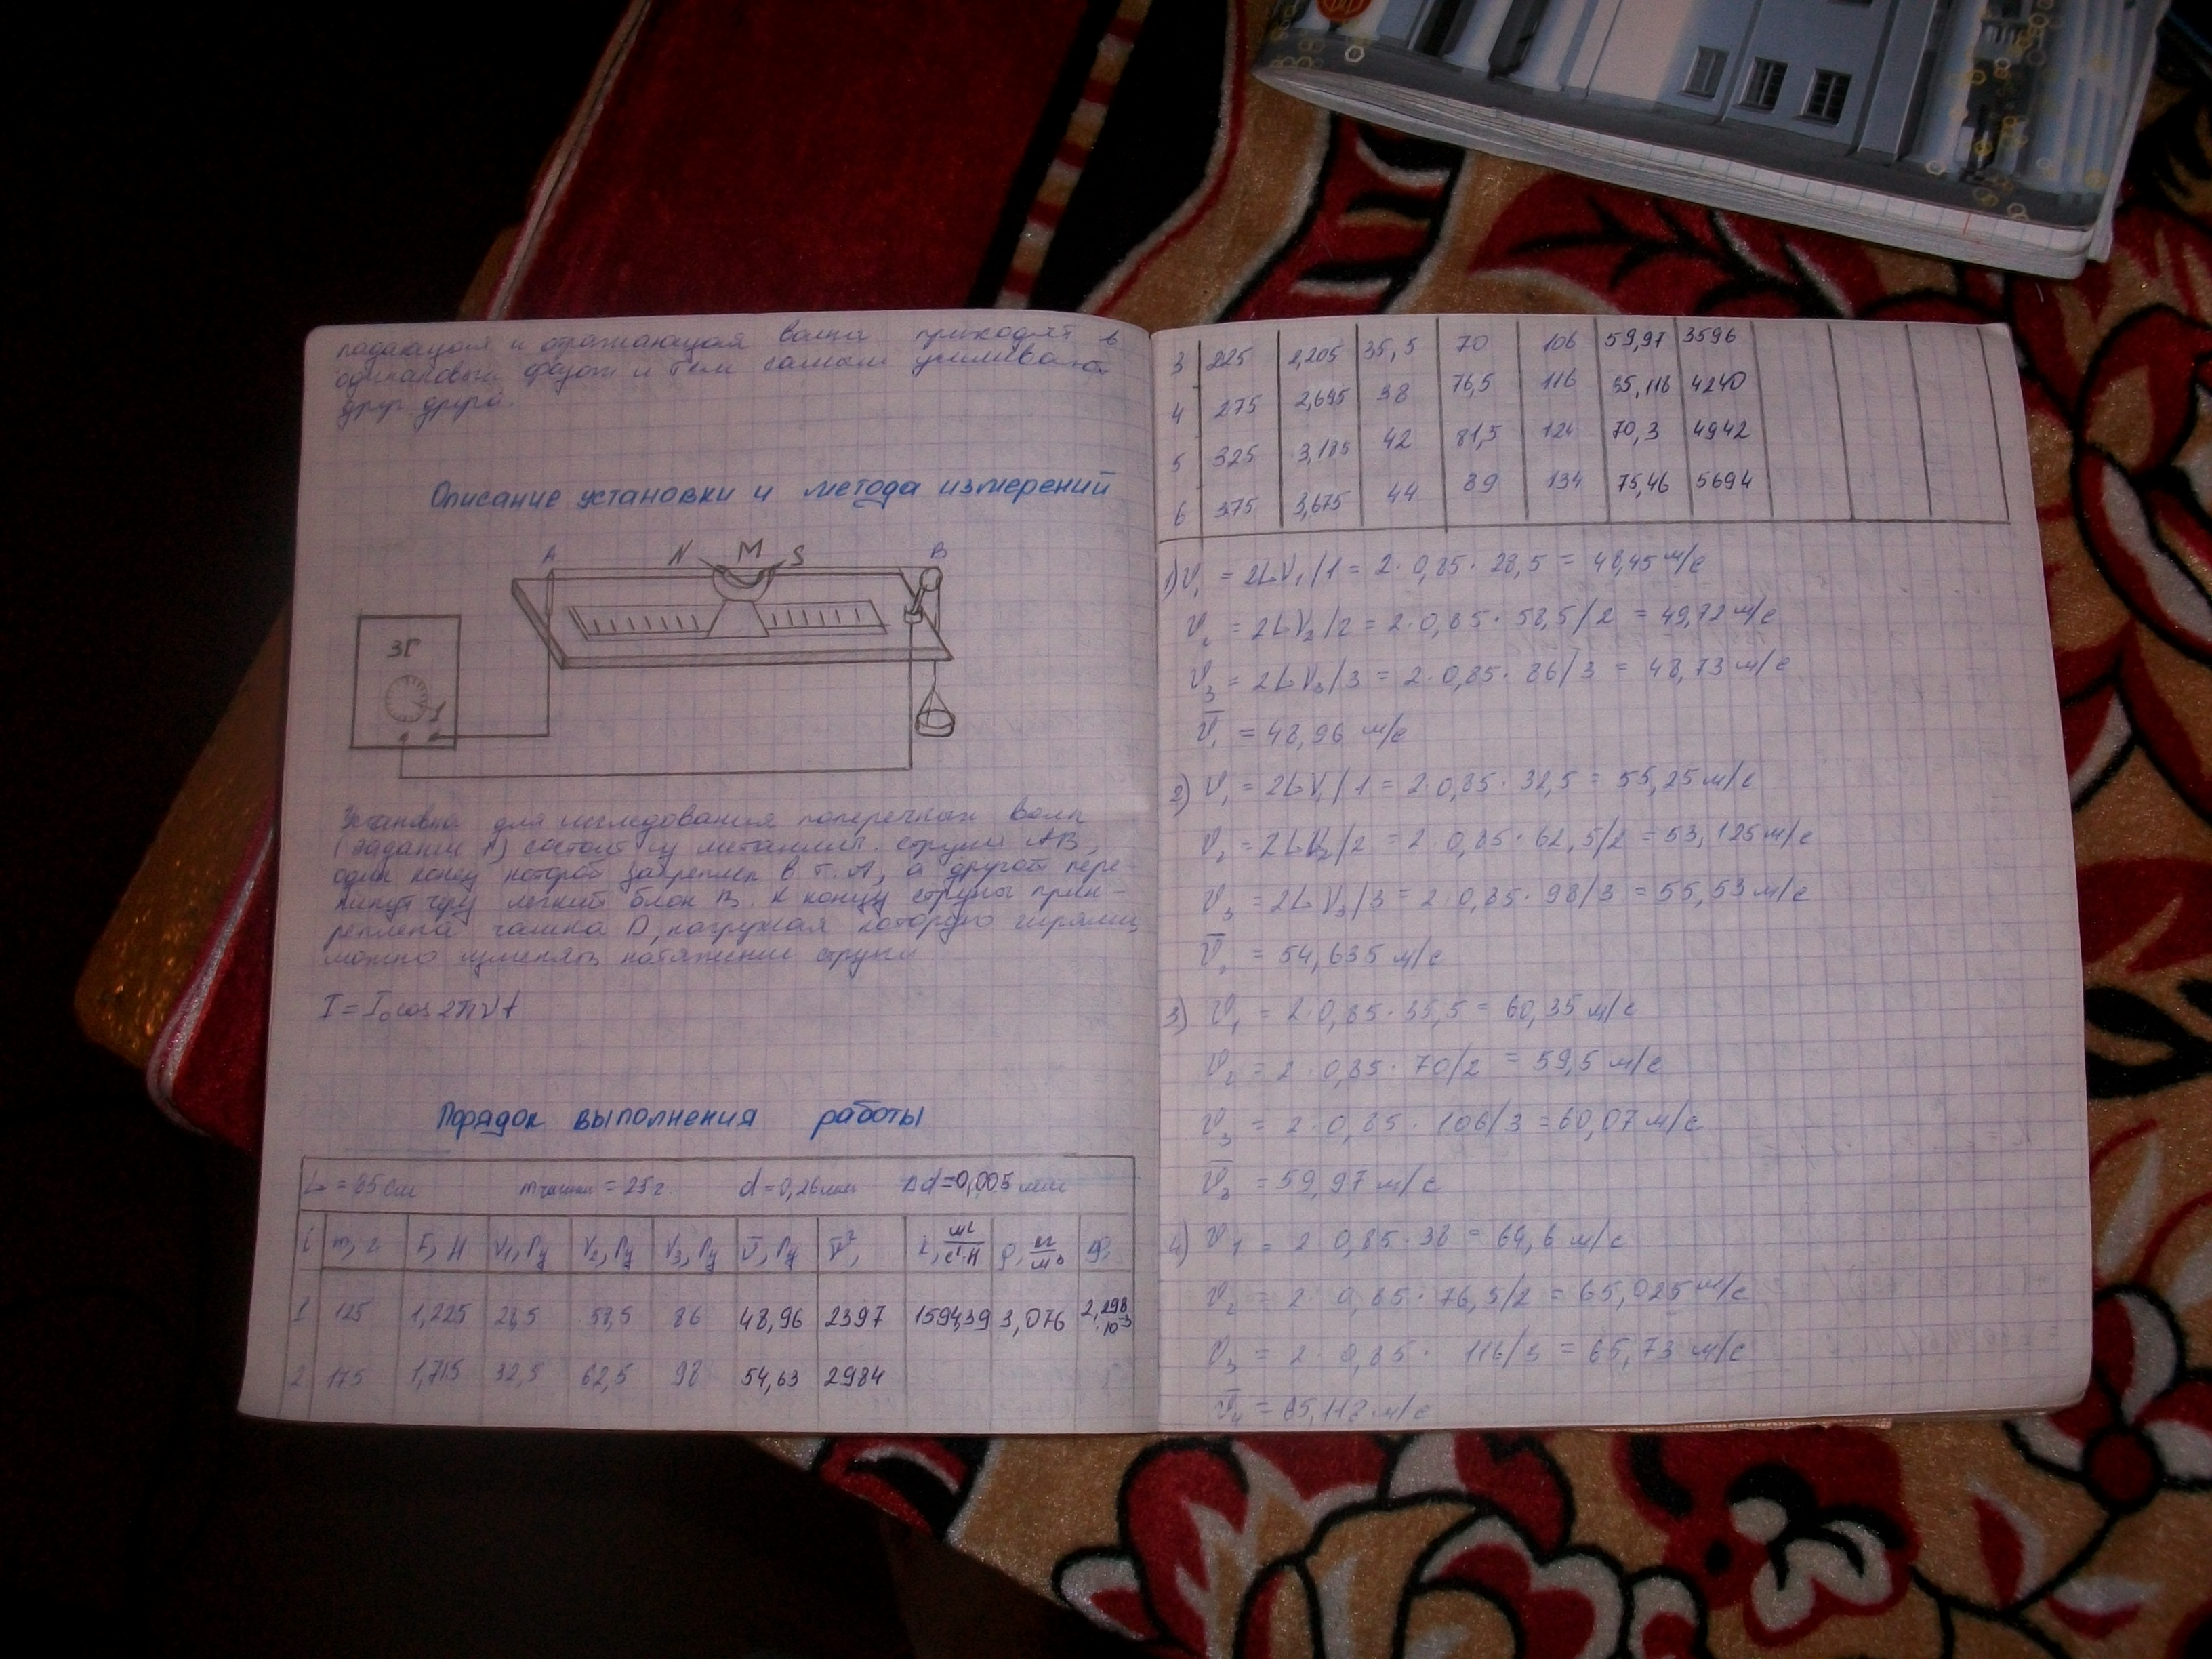 падающая и отражающая волна приходят в
одинаковой фазой и тем самым усиливают
друг друга.
Описание установки и метода измерений
A N M S B
ЗГ
Установка для исследования поперечных волн
(задание А) состоит из металлич. струны AB,
один конец которой закреплен в т. A, а другой пере-
кинут чрез легкий блок B. К концу струны прик-
реплена чашка D, нагружая которую гирями,
можно изменять натяжение струны
I = I₀ cos 2πνt
Порядок выполнения работы
L = 85 см m чашки = 25 г. d = 0,26 мм Δd = 0,005 мм
i m, г F, H ν₁, Гц ν₂, Гц ν₃, Гц v̅, Гц v̅², k, м²/с²·H ρ, кг/м³
1 125 1,225 28,5 58,5 86 48,96 2397 1594,39 3,076 2,298·10⁻³
2 175 1,715 32,5 62,5 98 54,63 2984
3 225 2,205 35,5 70 106 59,97 3596
4 275 2,695 38 76,5 116 65,118 4240
5 325 3,185 42 81,5 124 70,3 4942
6 375 3,675 44 89 134 75,46 5694
1) v₁ = 2Lν₁/1 = 2·0,85·28,5 = 48,45 м/с
v₂ = 2Lν₂/2 = 2·0,85·58,5/2 = 49,72 м/с
v₃ = 2Lν₃/3 = 2·0,85·86/3 = 48,73 м/с
v̅₁ = 48,96 м/с
2) v₁ = 2Lν₁/1 = 2·0,85·32,5 = 55,25 м/с
v₂ = 2Lν₂/2 = 2·0,85·62,5/2 = 53,125 м/с
v₃ = 2Lν₃/3 = 2·0,85·98/3 = 55,53 м/с
v̅₁ = 54,635 м/с
3) v₁ = 2·0,85·35,5 = 60,35 м/с
v₂ = 2·0,85·70/2 = 59,5 м/с
v₃ = 2·0,85·106/3 = 60,07 м/с
v̅₃ = 59,97 м/с
4) v₁ = 2·0,85·38 = 64,6 м/с
v₂ = 2·0,85·76,5/2 = 65,025 м/с
v₃ = 2·0,85·116/3 = 65,73 м/с
v̅₄ = 65,118 м/с